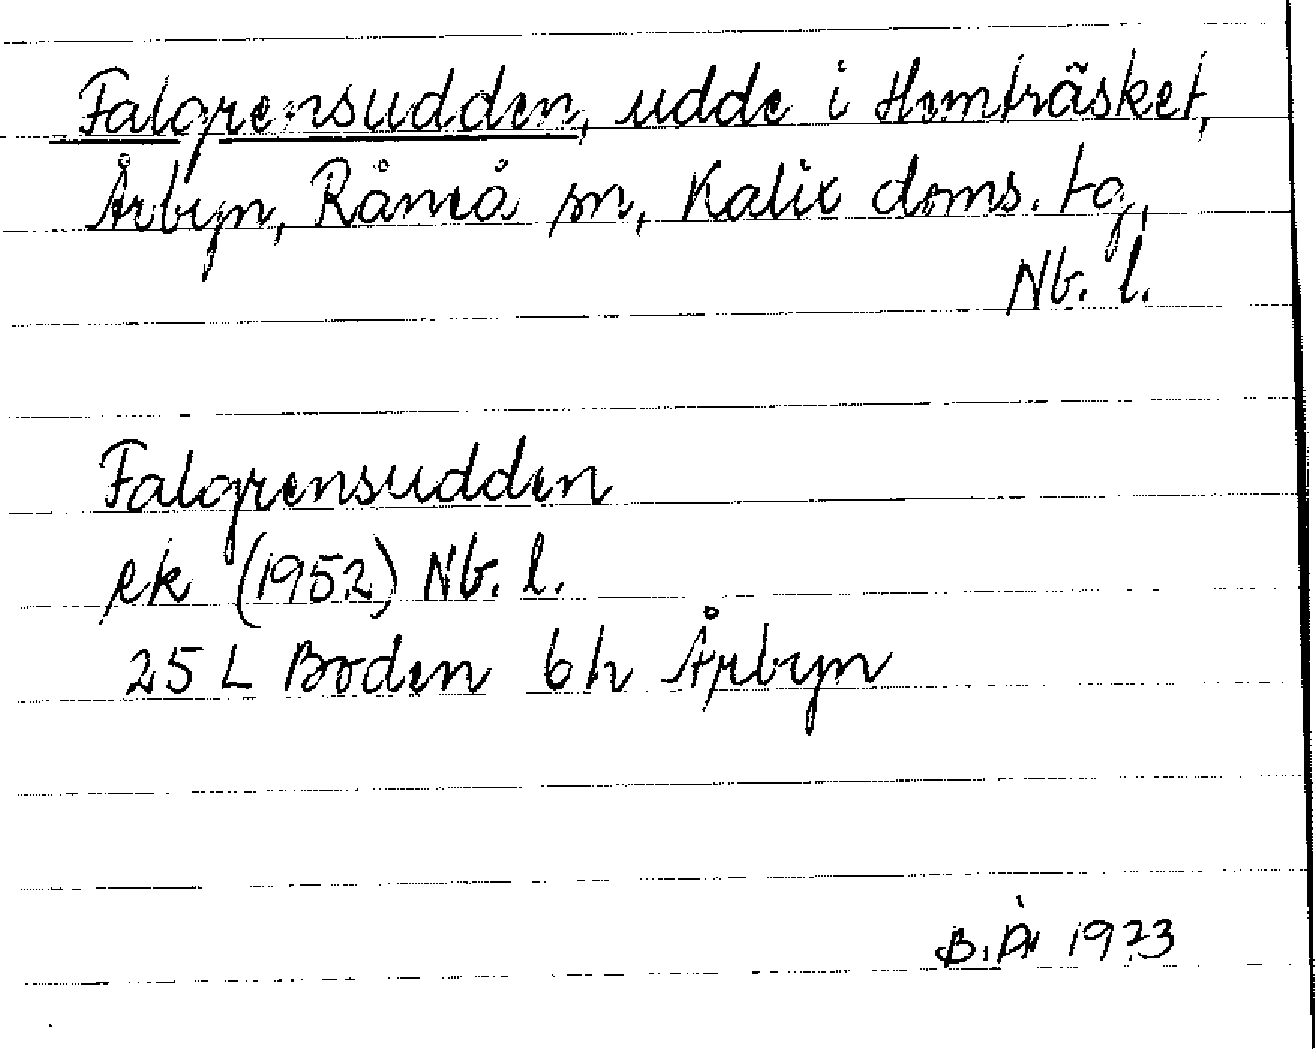 Falgrensudden, udde i Hemträsket,
Årbyn, Råneå sn, Kalix doms. tg,
Nb. l.
Falgrensudden
ek (1952) Nb. l.
25 L Boden 6h Årbyn
B.Å. 1973